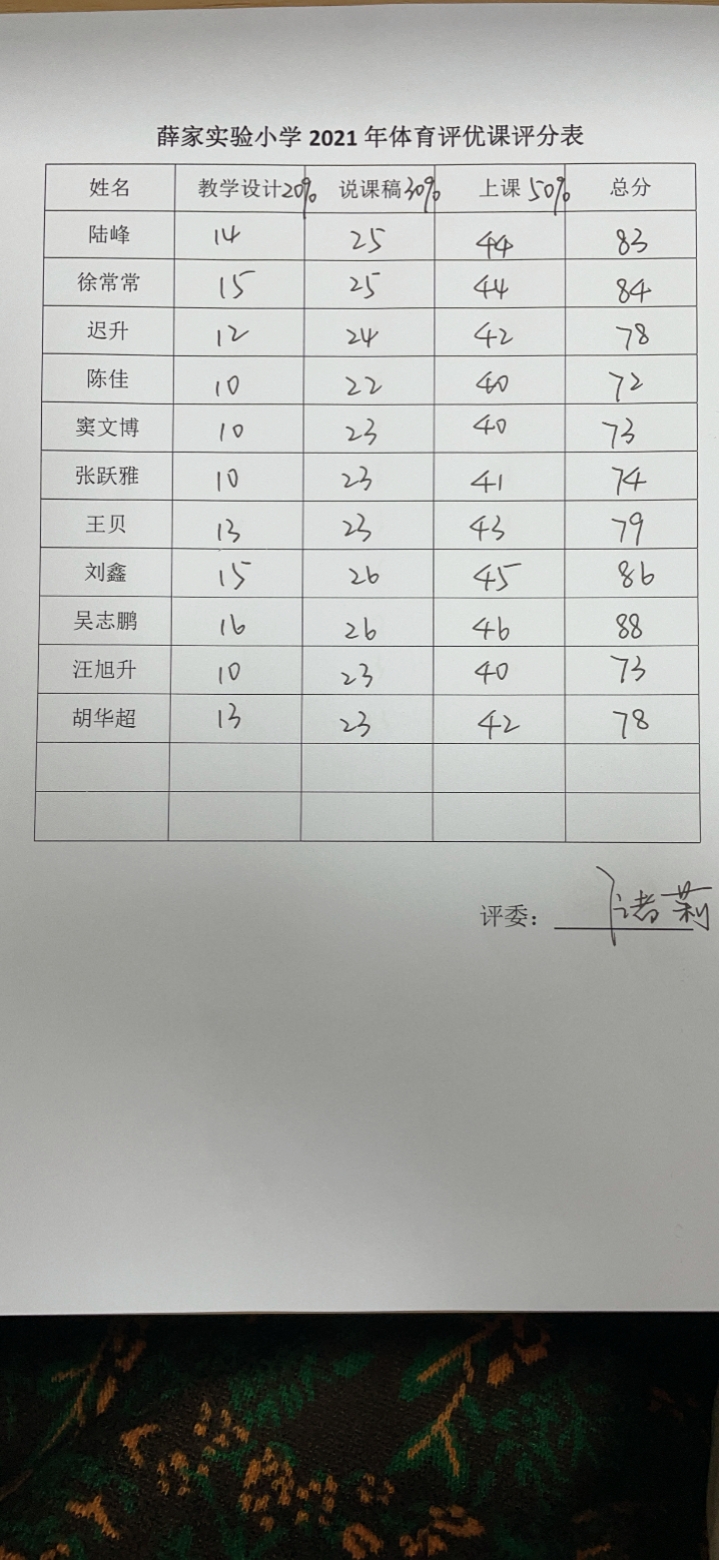 薛家实验小学 2021 年体育评优课评分表
姓名 教学设计20% 说课稿30% 上课 50% 总分
陆峰 14 25 44 83
徐常常 15 25 44 84
迟升 12 24 42 78
陈佳 10 22 40 72
窦文博 10 23 40 73
张跃雅 10 23 41 74
王贝 13 23 43 79
刘鑫 15 26 45 86
吴志鹏 16 26 46 88
汪旭升 10 23 40 73
胡华超 13 23 42 78
评委：